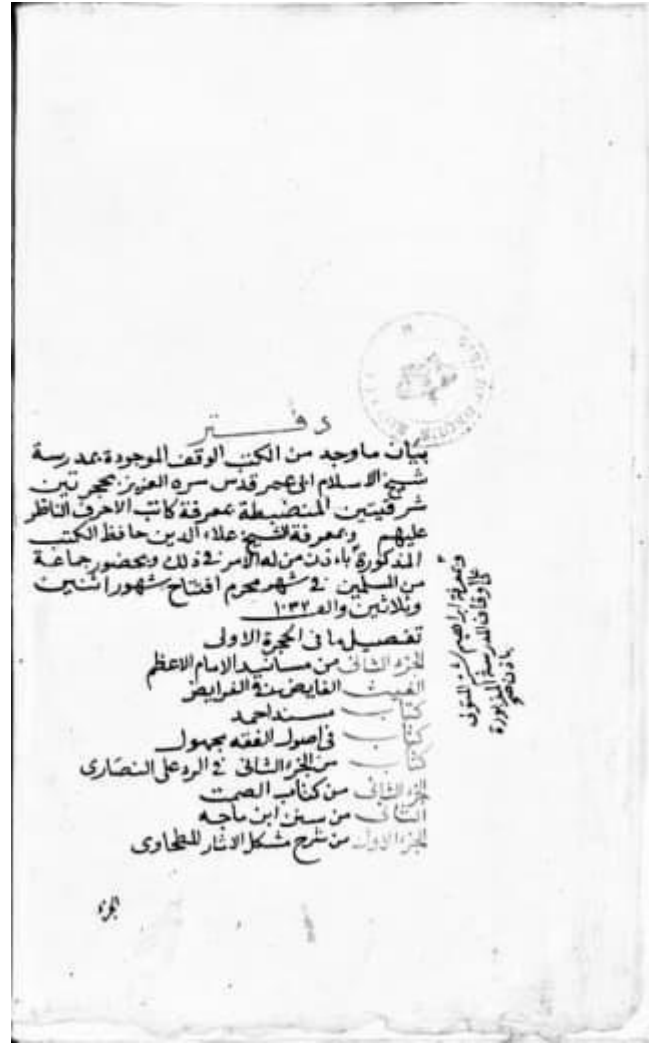 دفتر
بيان ما وجد من الكتب الوقف الموجودة بمدرسة
شيخ الاسلام ابى عمر قدس سره العزيز بحجرتين
شرقيتين المنضبطة بمعرفة كاتب الاحرف الناظر
عليهم وبمعرفة الشيخ علاء الدين حافظ الكتب
المذكورة باذن من له الامر في ذلك وبحضور جماعة
من المسلمين في شهر محرم افتتاح شهور اثنين
وثلاثين والف ١٠٣٢
تفصيل ما فى الحجرة الاولى
الجزء الثانى من مسانيد الامام الاعظم
الغيث الفايض في الفرايض
كتاب مسند احمد
كتاب فى اصول الفقه مجهول
كتاب من الجزء الثانى في الرد على النصارى
الجزء الثانى من كتاب الصمت
الثانى من سنن ابن ماجه
الجزء الاول من شرح مشكل الاثار للطحاوى
الجزء
وبمعرفة ابراهيم المتولى
على اوقاف المدرسة المزبورة